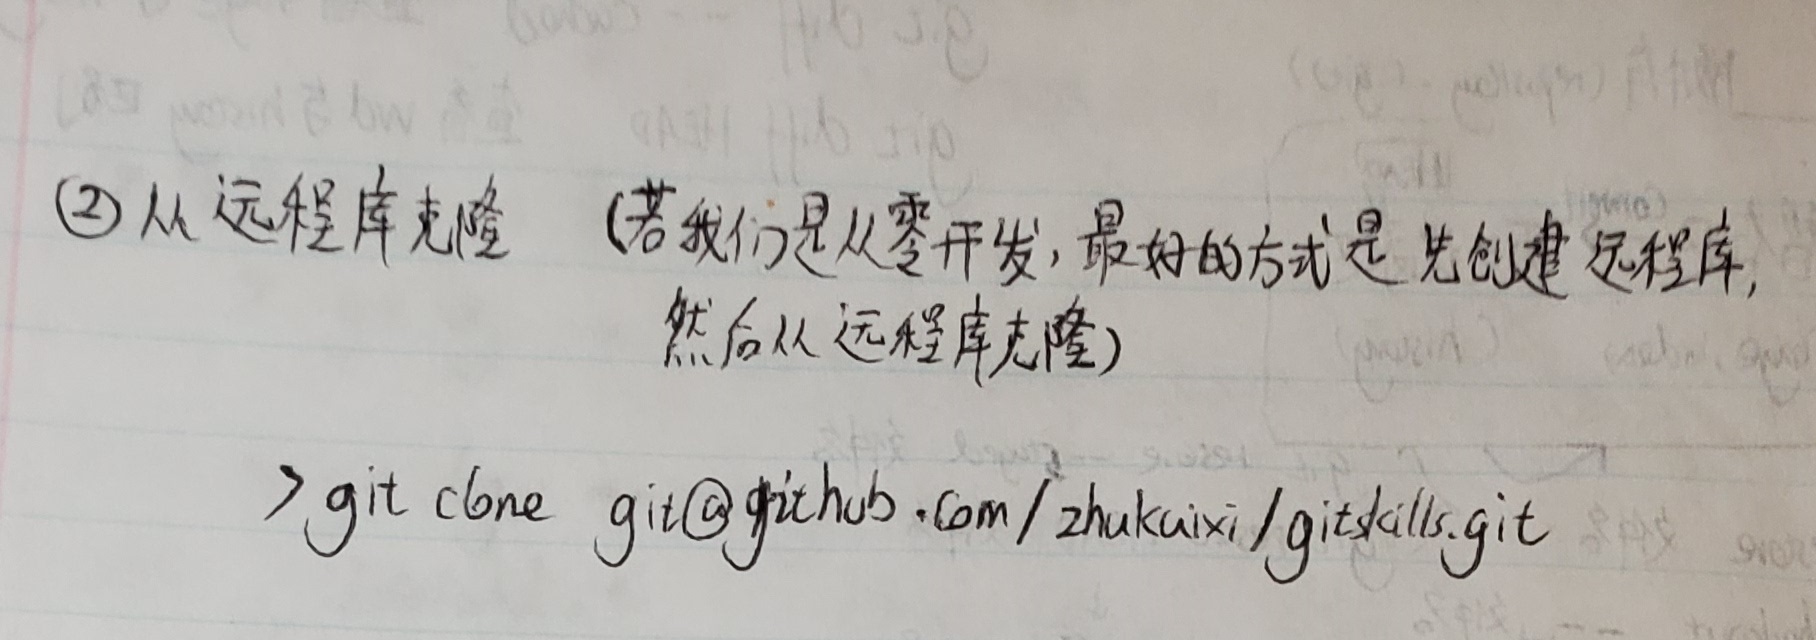 ② 从远程库克隆 (若我们是从零开发,最好的方式是先创建远程库,
然后从远程库克隆)
> git clone git@github.com/zhukaixi/gitskills.git